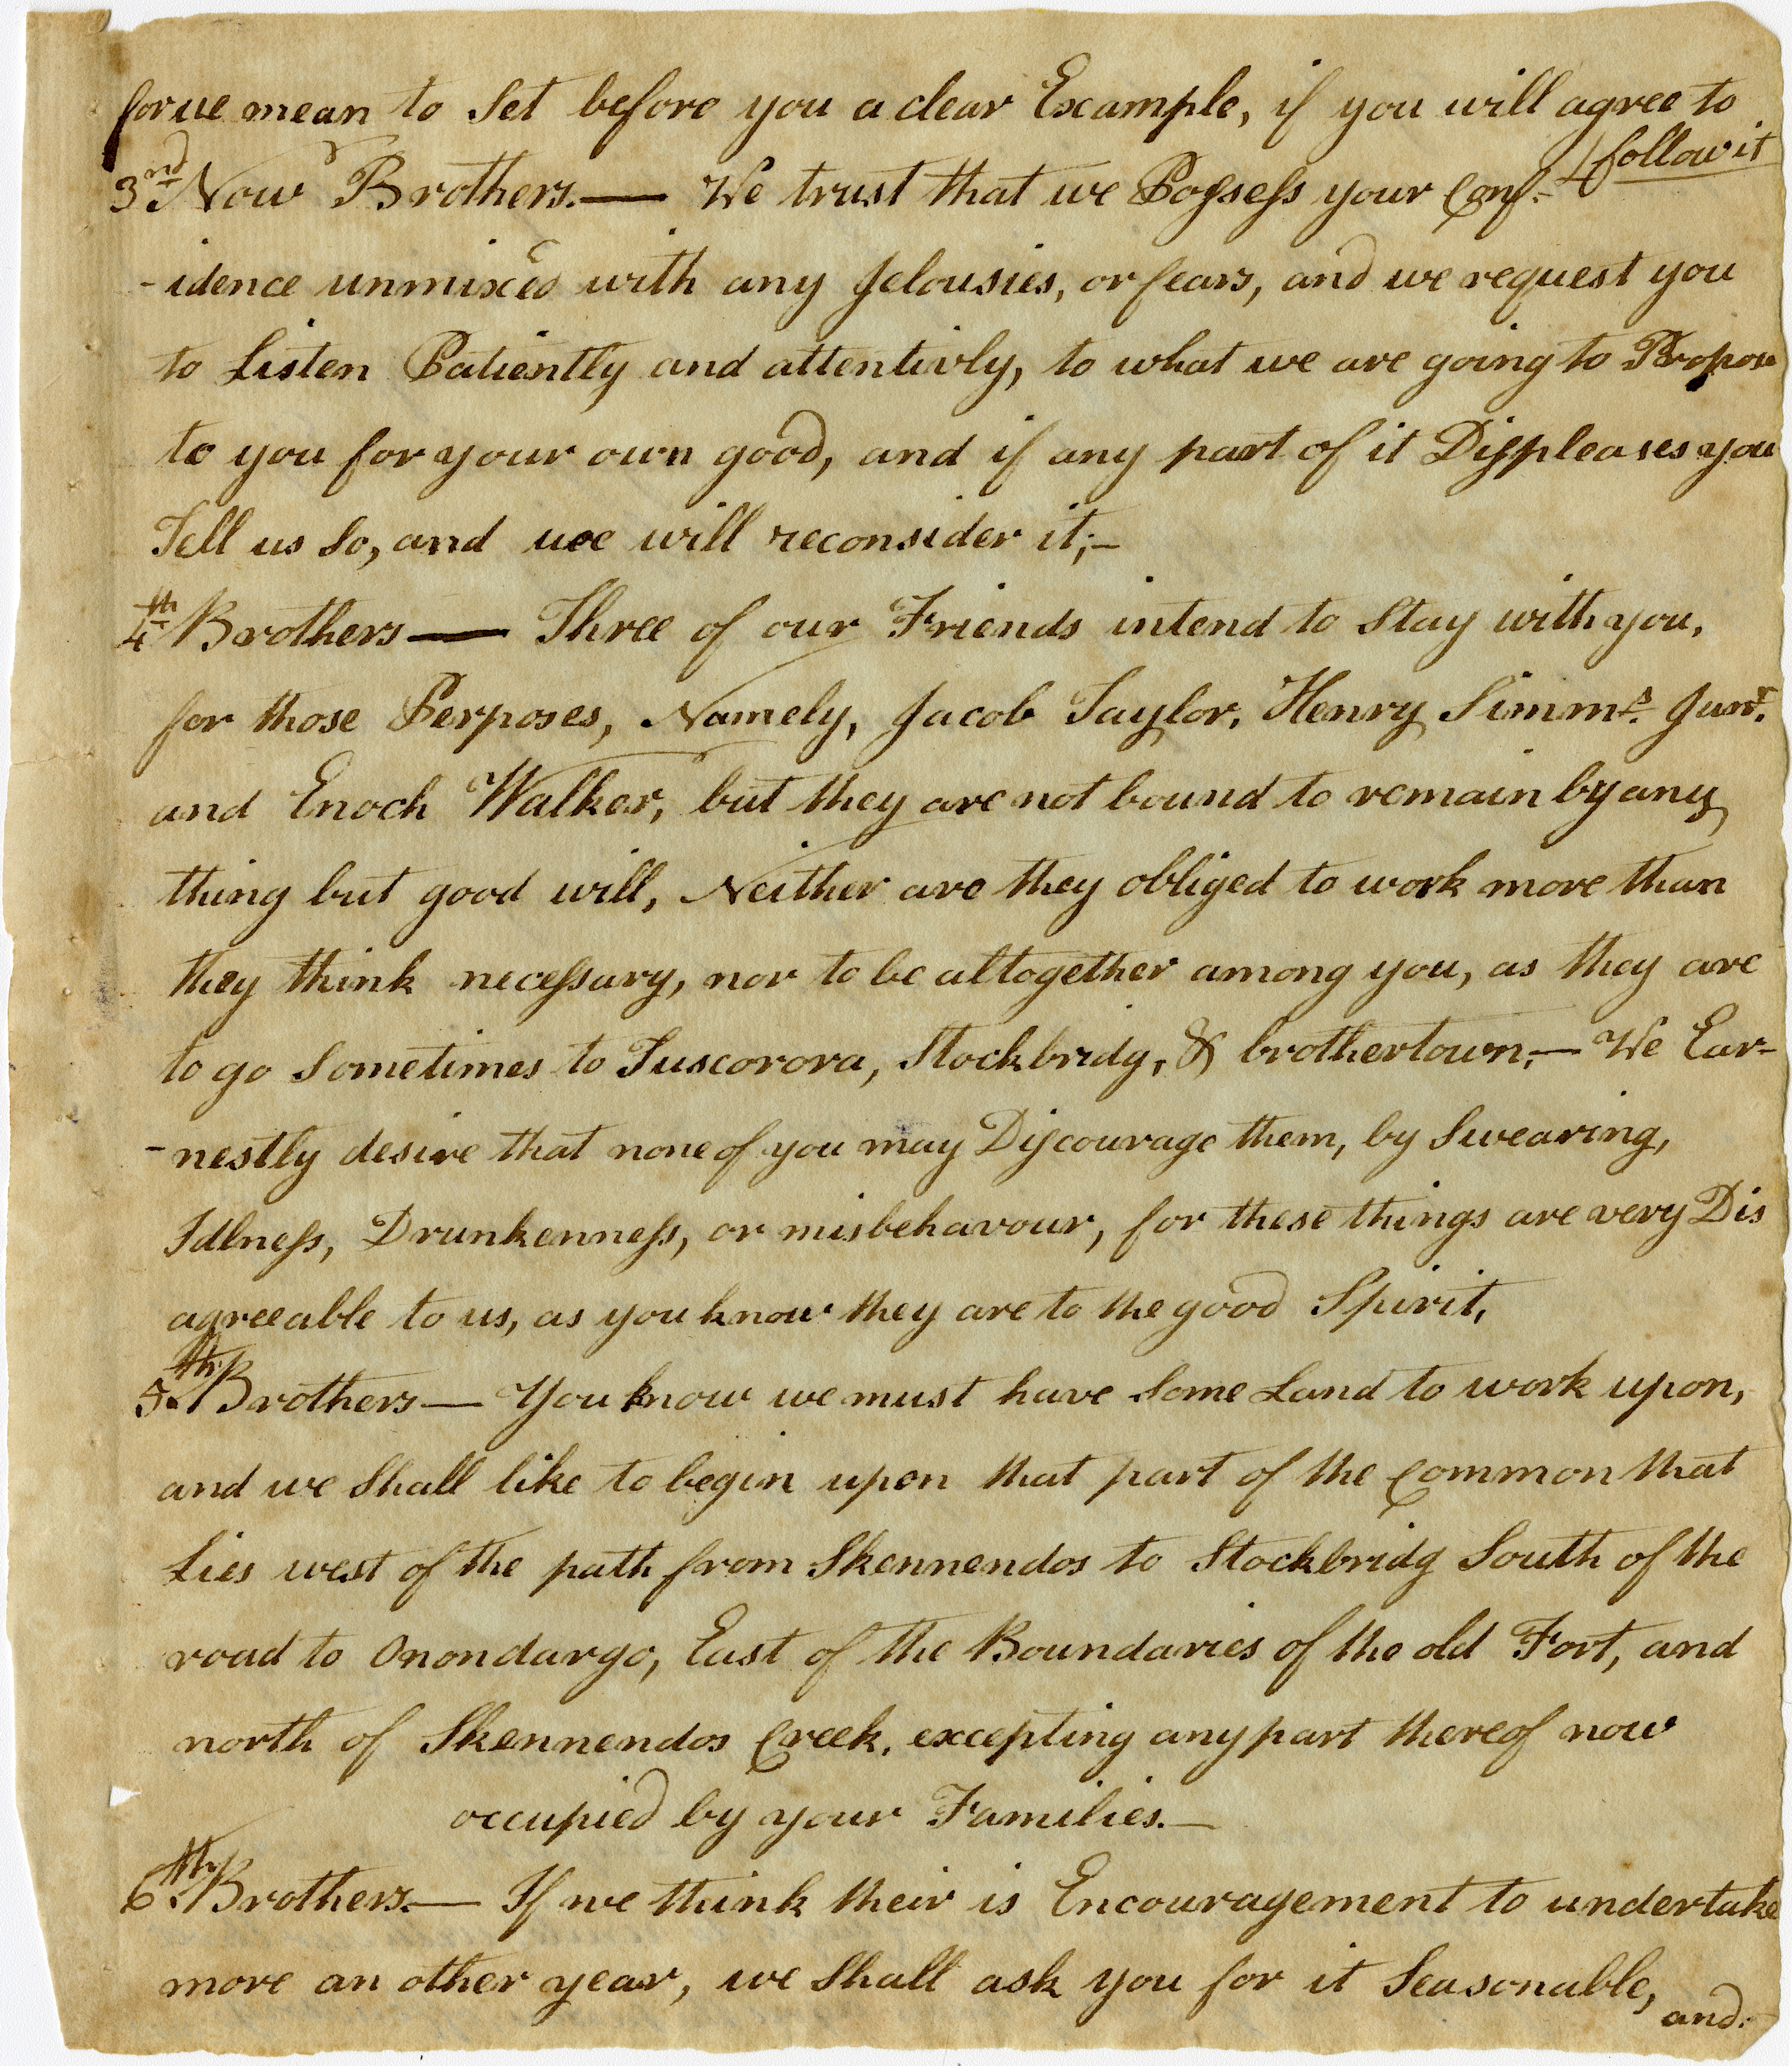 for we mean to Set before you a clear Example, if you will agree to
follow it
3rd Now Brothers.— We trust that we Possess your Conf-
-idence unmixed with any Jelousies, or fears, and we request you
to Listen Patiently and attentivly, to what we are going to Propose
to you for your own good, and if any part of it Displeases you
Tell us So, and we will reconsider it;—
4th Brothers — Three of our Friends intend to Stay with you,
for those Perposes, Namely, Jacob Taylor, Henry Simms. Junr.
and Enoch Walker, but they are not bound to remain by any
thing but good will, Neither are they obliged to work more than
they think necessary, nor to be altogether among you, as they are
to go Sometimes to Tuscorora, Stockbridg, & brothertown;— We Ear-
-nestly desire that none of you may Discourage them, by Swearing,
Idlness, Drunkenness, or misbehavour, for these things are very Dis
agreeable to us, as you know they are to the good Spirit,
5th Brothers — You know we must have Some Land to work upon,
and we Shall like to begin upon that part of the Common that
Lies west of the path from Skennendos to Stockbridg South of the
road to Onondargo, East of the Boundaries of the old Fort, and
north of Skennendos Creek, excepting any part thereof now
occupied by your Families.—
6th Brothers.— If we think their is Encouragement to undertake
more an other year, we Shall ask you for it Seasonable,
and.